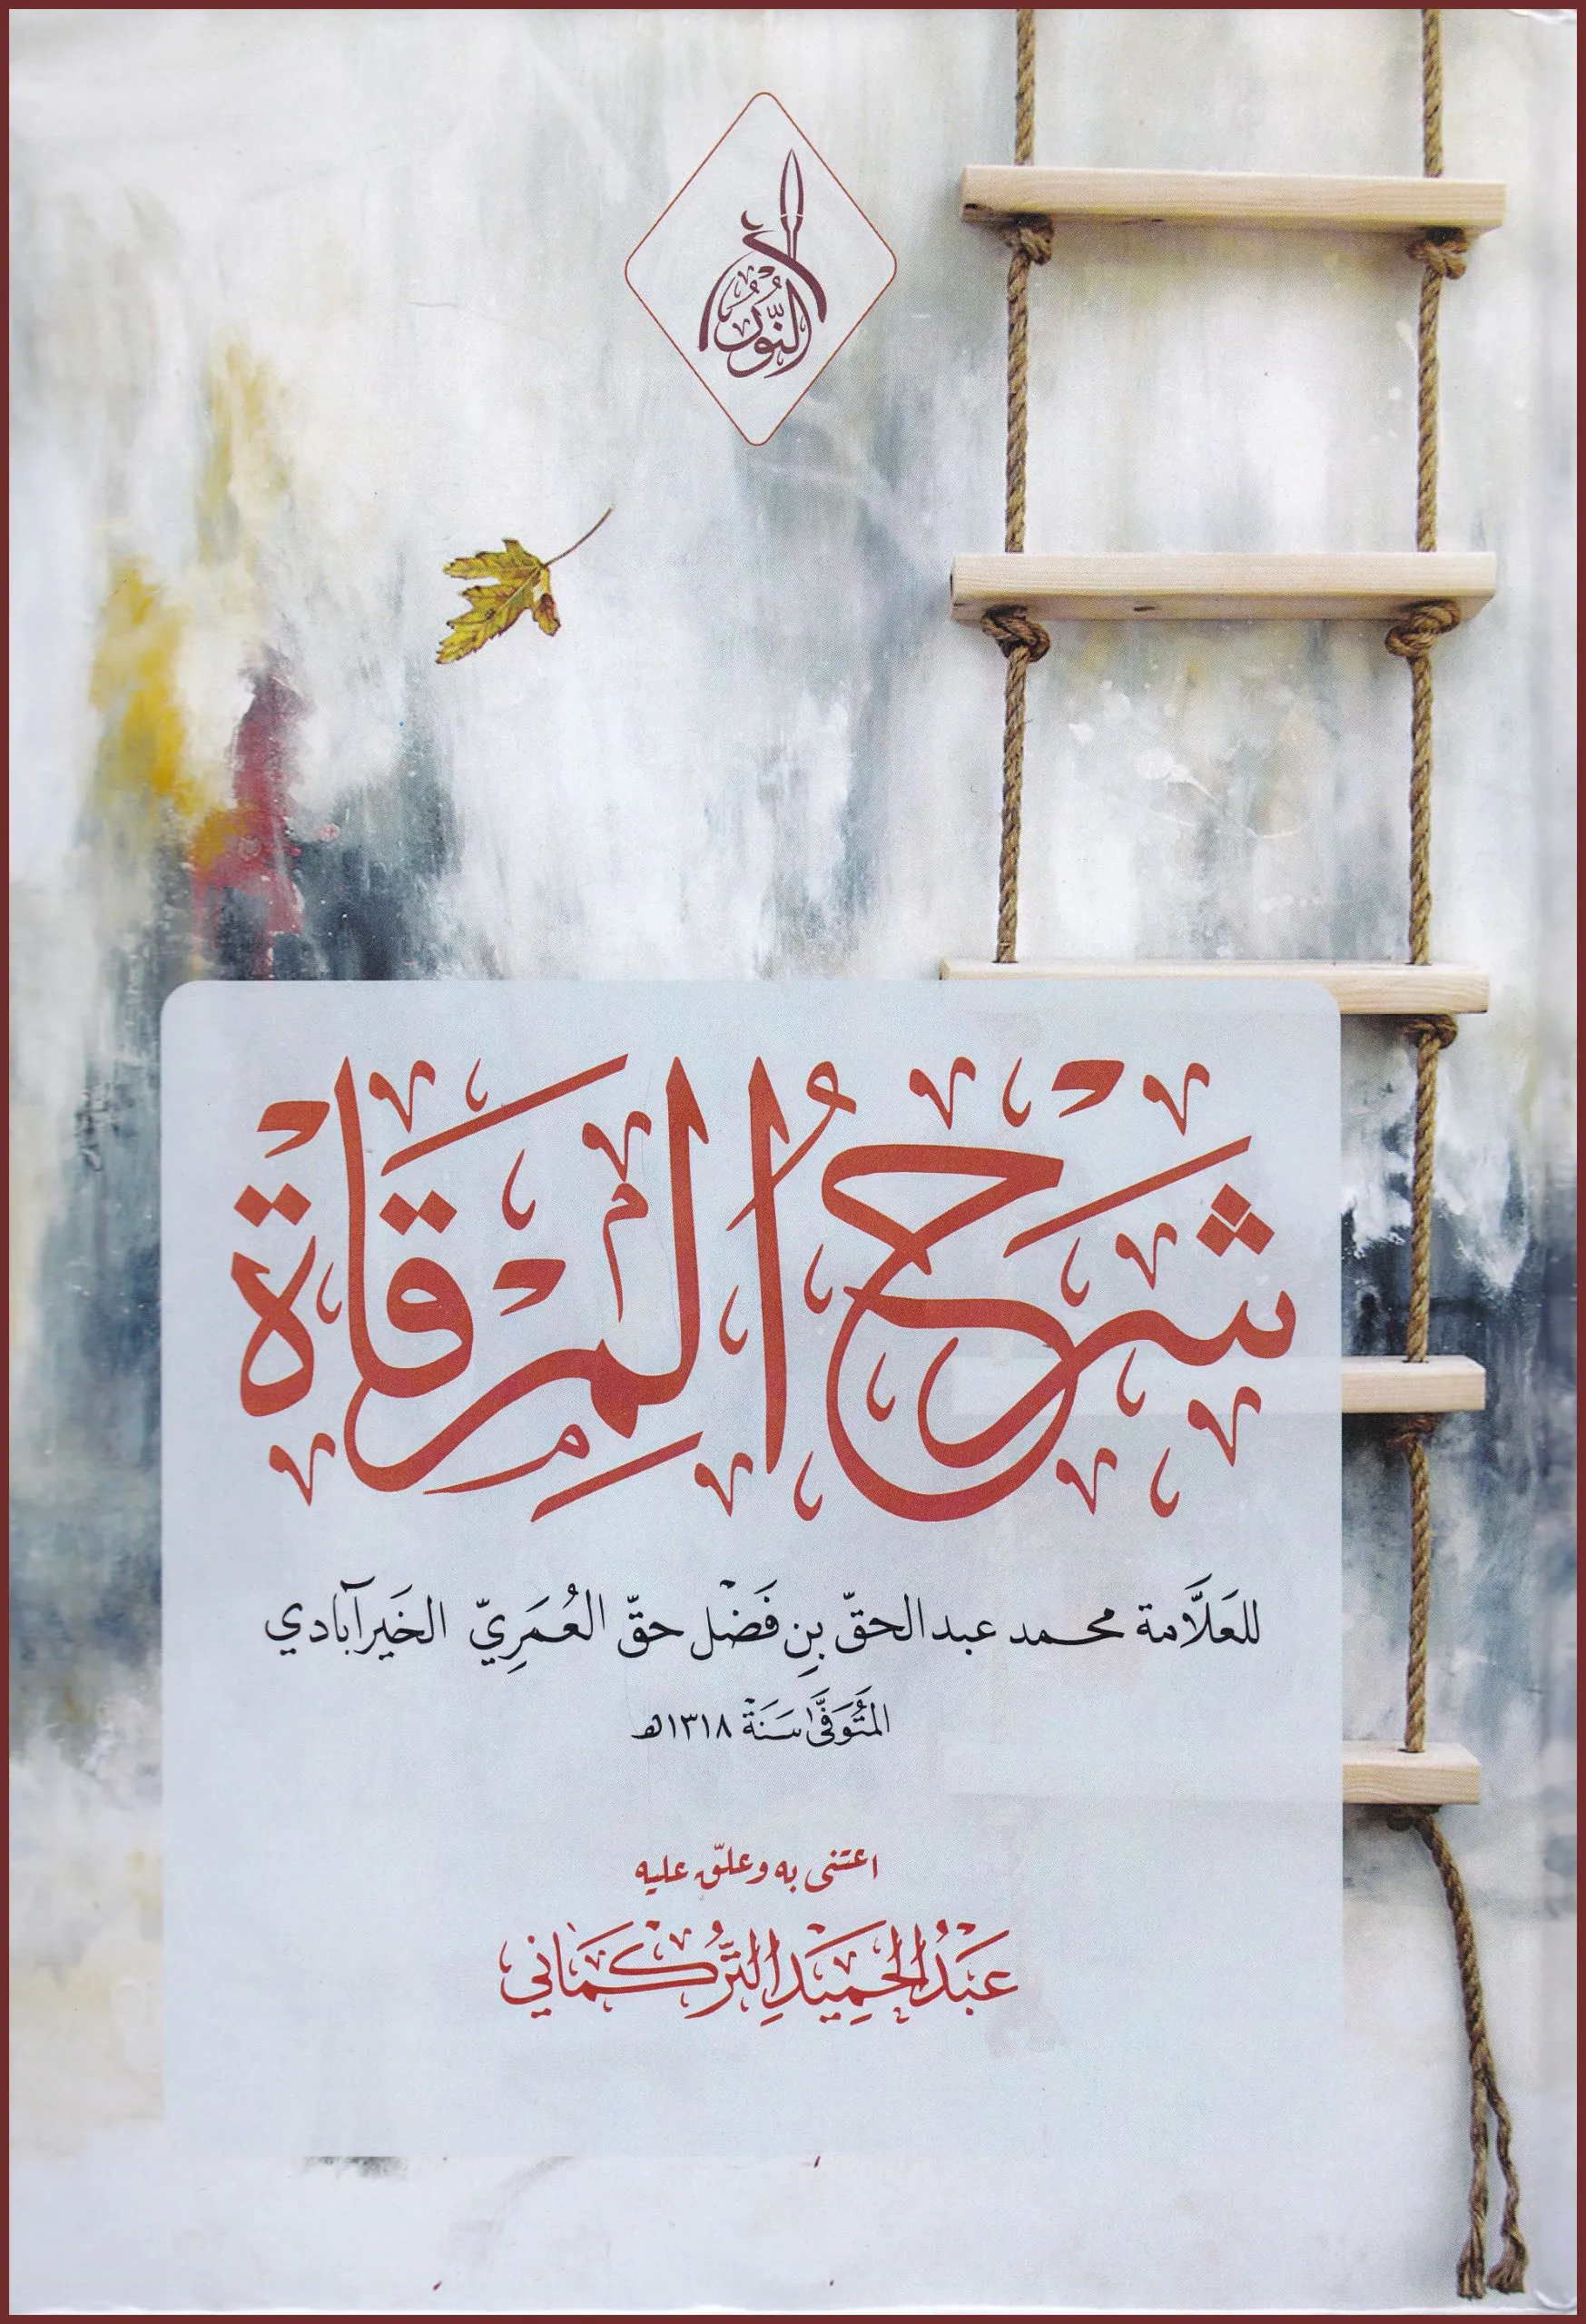 النُّور
شَرْحُ الْمِرْقَاة
للعَلَّامة محمد عبد الحقّ بنِ فَضْل حقّ العُمَرِيّ الخَيرآبادي
المُتَوَفَّى سَنَة ١٣١٨هـ
اعتنى به وعلّق عليه
عَبْدُ الحَمِيْدِ التُّرْكُمَانِي